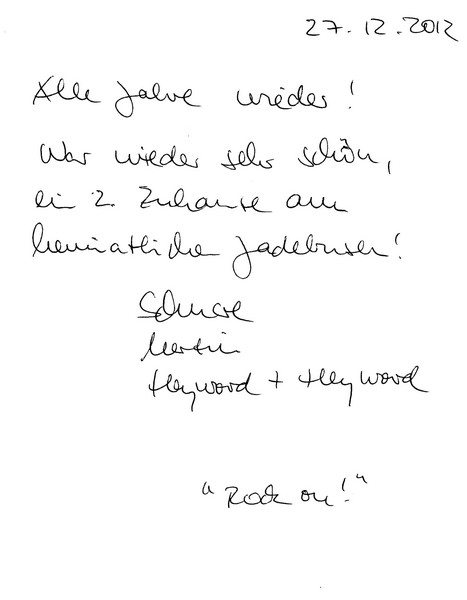 27.12.2012
Alle Jahre wieder!
War wieder sehr schön,
ein 2. Zuhause am
heimatlichen Jadebusen!
Martin
Heyword + Heyword
"Rock on!"